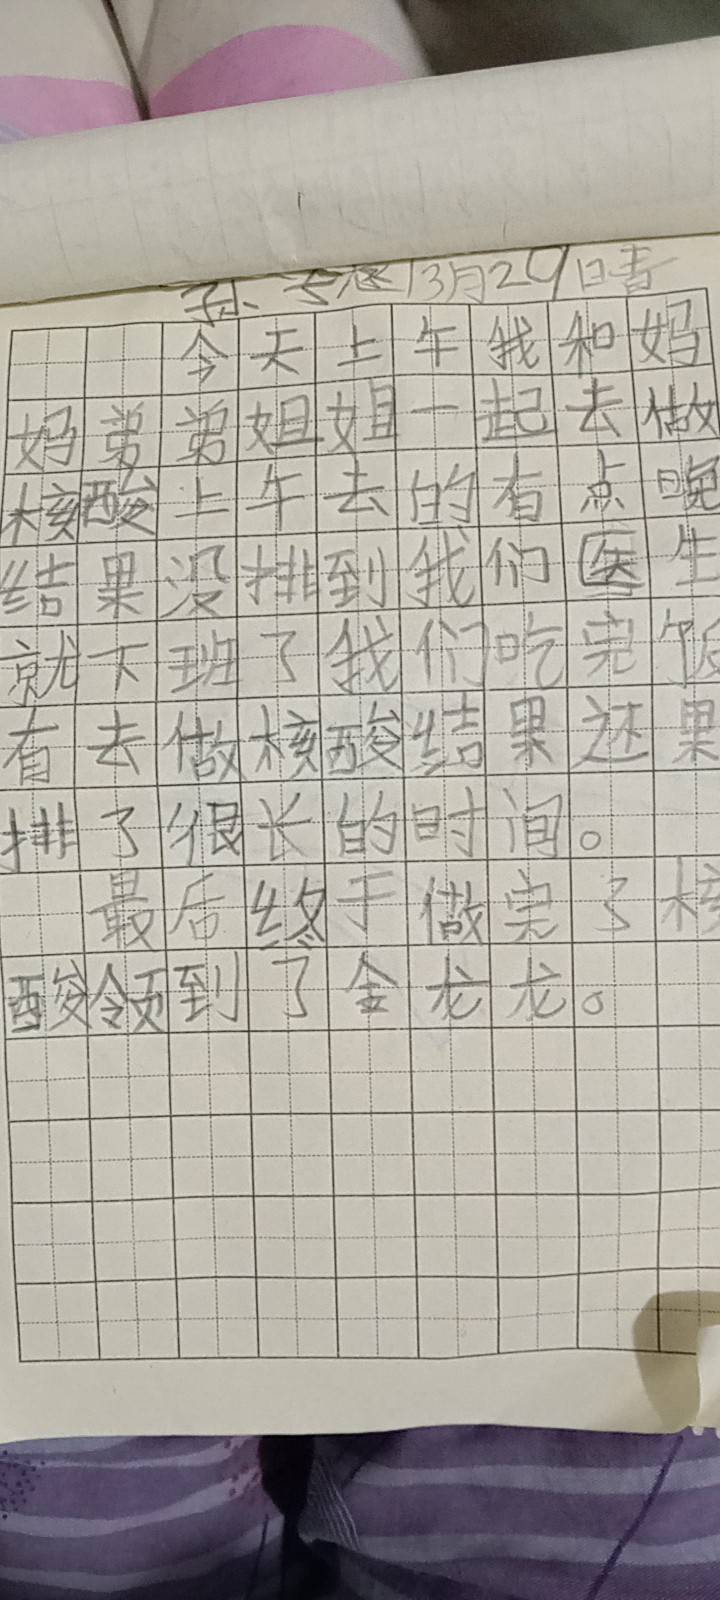 孙 3月29日 晴
今天上午我和妈
妈弟弟姐姐一起去做
核酸上午去的有点晚
结果没排到我们医生
就下班了我们吃完饭
有去做核酸结果还果
排了很长的时间。
最后终于做完了核
酸领到了金龙龙。